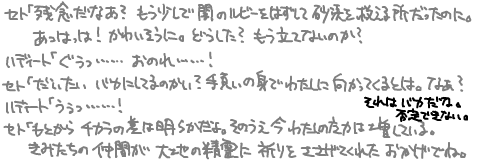 セト「残念だなあ? もう少しで闇のルビーをはずして砂漠を救える所だったのに。
あっはっは! かわいそうに。どうした? もう立てないのか?
ハディート「ぐうっ…… おのれ……!
セト「だいたい バカにしてるのかい? 手負いの身でわたしに向かってくるとは。なぁ?
ハディート「うぅっ……!
それはバカだな。
否定できない。
セト「もとから チカラの差は明らかだよ。そのうえ今わたしの力は増している。
きみたちの仲間が 大地の精霊に 祈りを ささげてくれた おかげでね。